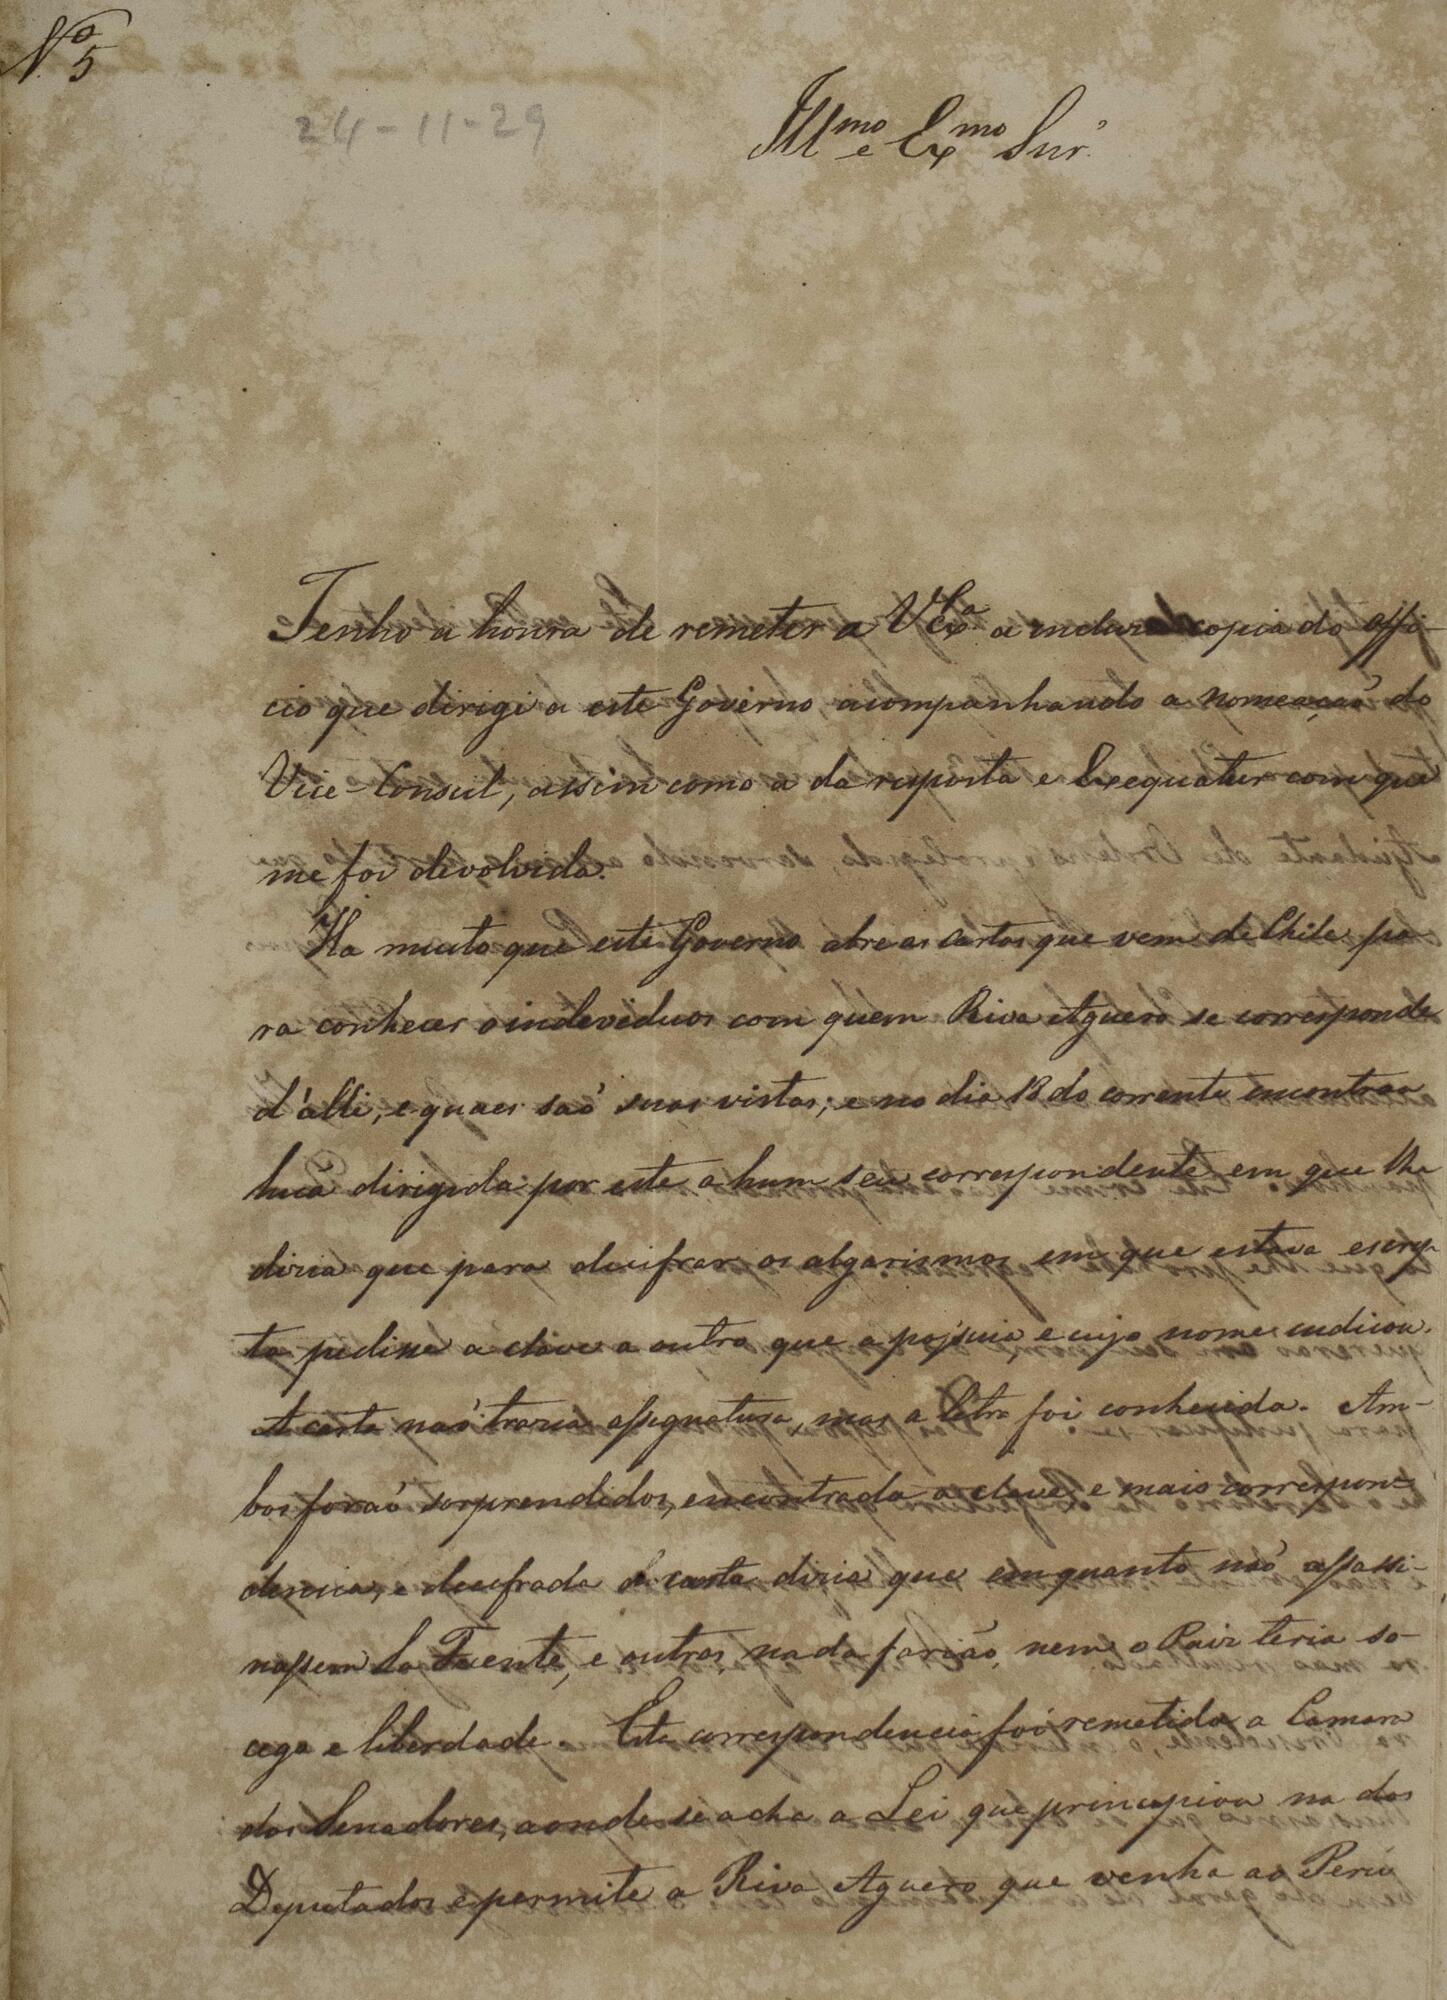 Nº 5
24-11-29
Illmo e Exmo Snr.
Tenho a honra de remeter a VExa. a incluza copia do offi-
cio que dirigi a este Governo, acompanhando a nomeação do
Vice-Consul, assim como a da resposta e Exequatur com que
me foi devolvida.
Ha muito que este Governo abre as cartas que vem de Chile pa
ra conhecer o indeviduos com quem Riva Aguero se corresponde
d'alli, e quaes saõ suas vistas; e no dia 18 do corrente encontrou
huã dirigida por este a hum seu correspondente em que lhe
dizia que para decifrar os algarismos em que estava escrip-
ta pedisse a clave a outro que a possuia, e cujo nome indicou.
A carta naõ trazia assignatura, mas a letra foi conhecida. Am-
bos foraõ sorprendidos, encontrada a clave, e mais correspon-
dencia, e decifrada a carta dizia que emquanto naõ assassi-
nassem La Fuente, e outros, nada farião, nem o Paiz teria so-
cego e liberdade. Esta correspondencia foi remetida a Camara
dos Senadores, aonde se acha a Lei que principiou na dos
Deputados e permite a Riva Aguero que venha ao Perú